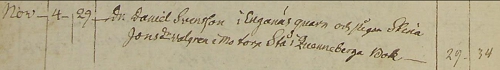 Nov - 4 - 29 - Dr. Daniel Svensson i Enganäs quarn och pigan Stina
Jonsdr Walgren i Motorp Stå i Quenneberga Bok - 29 - 34